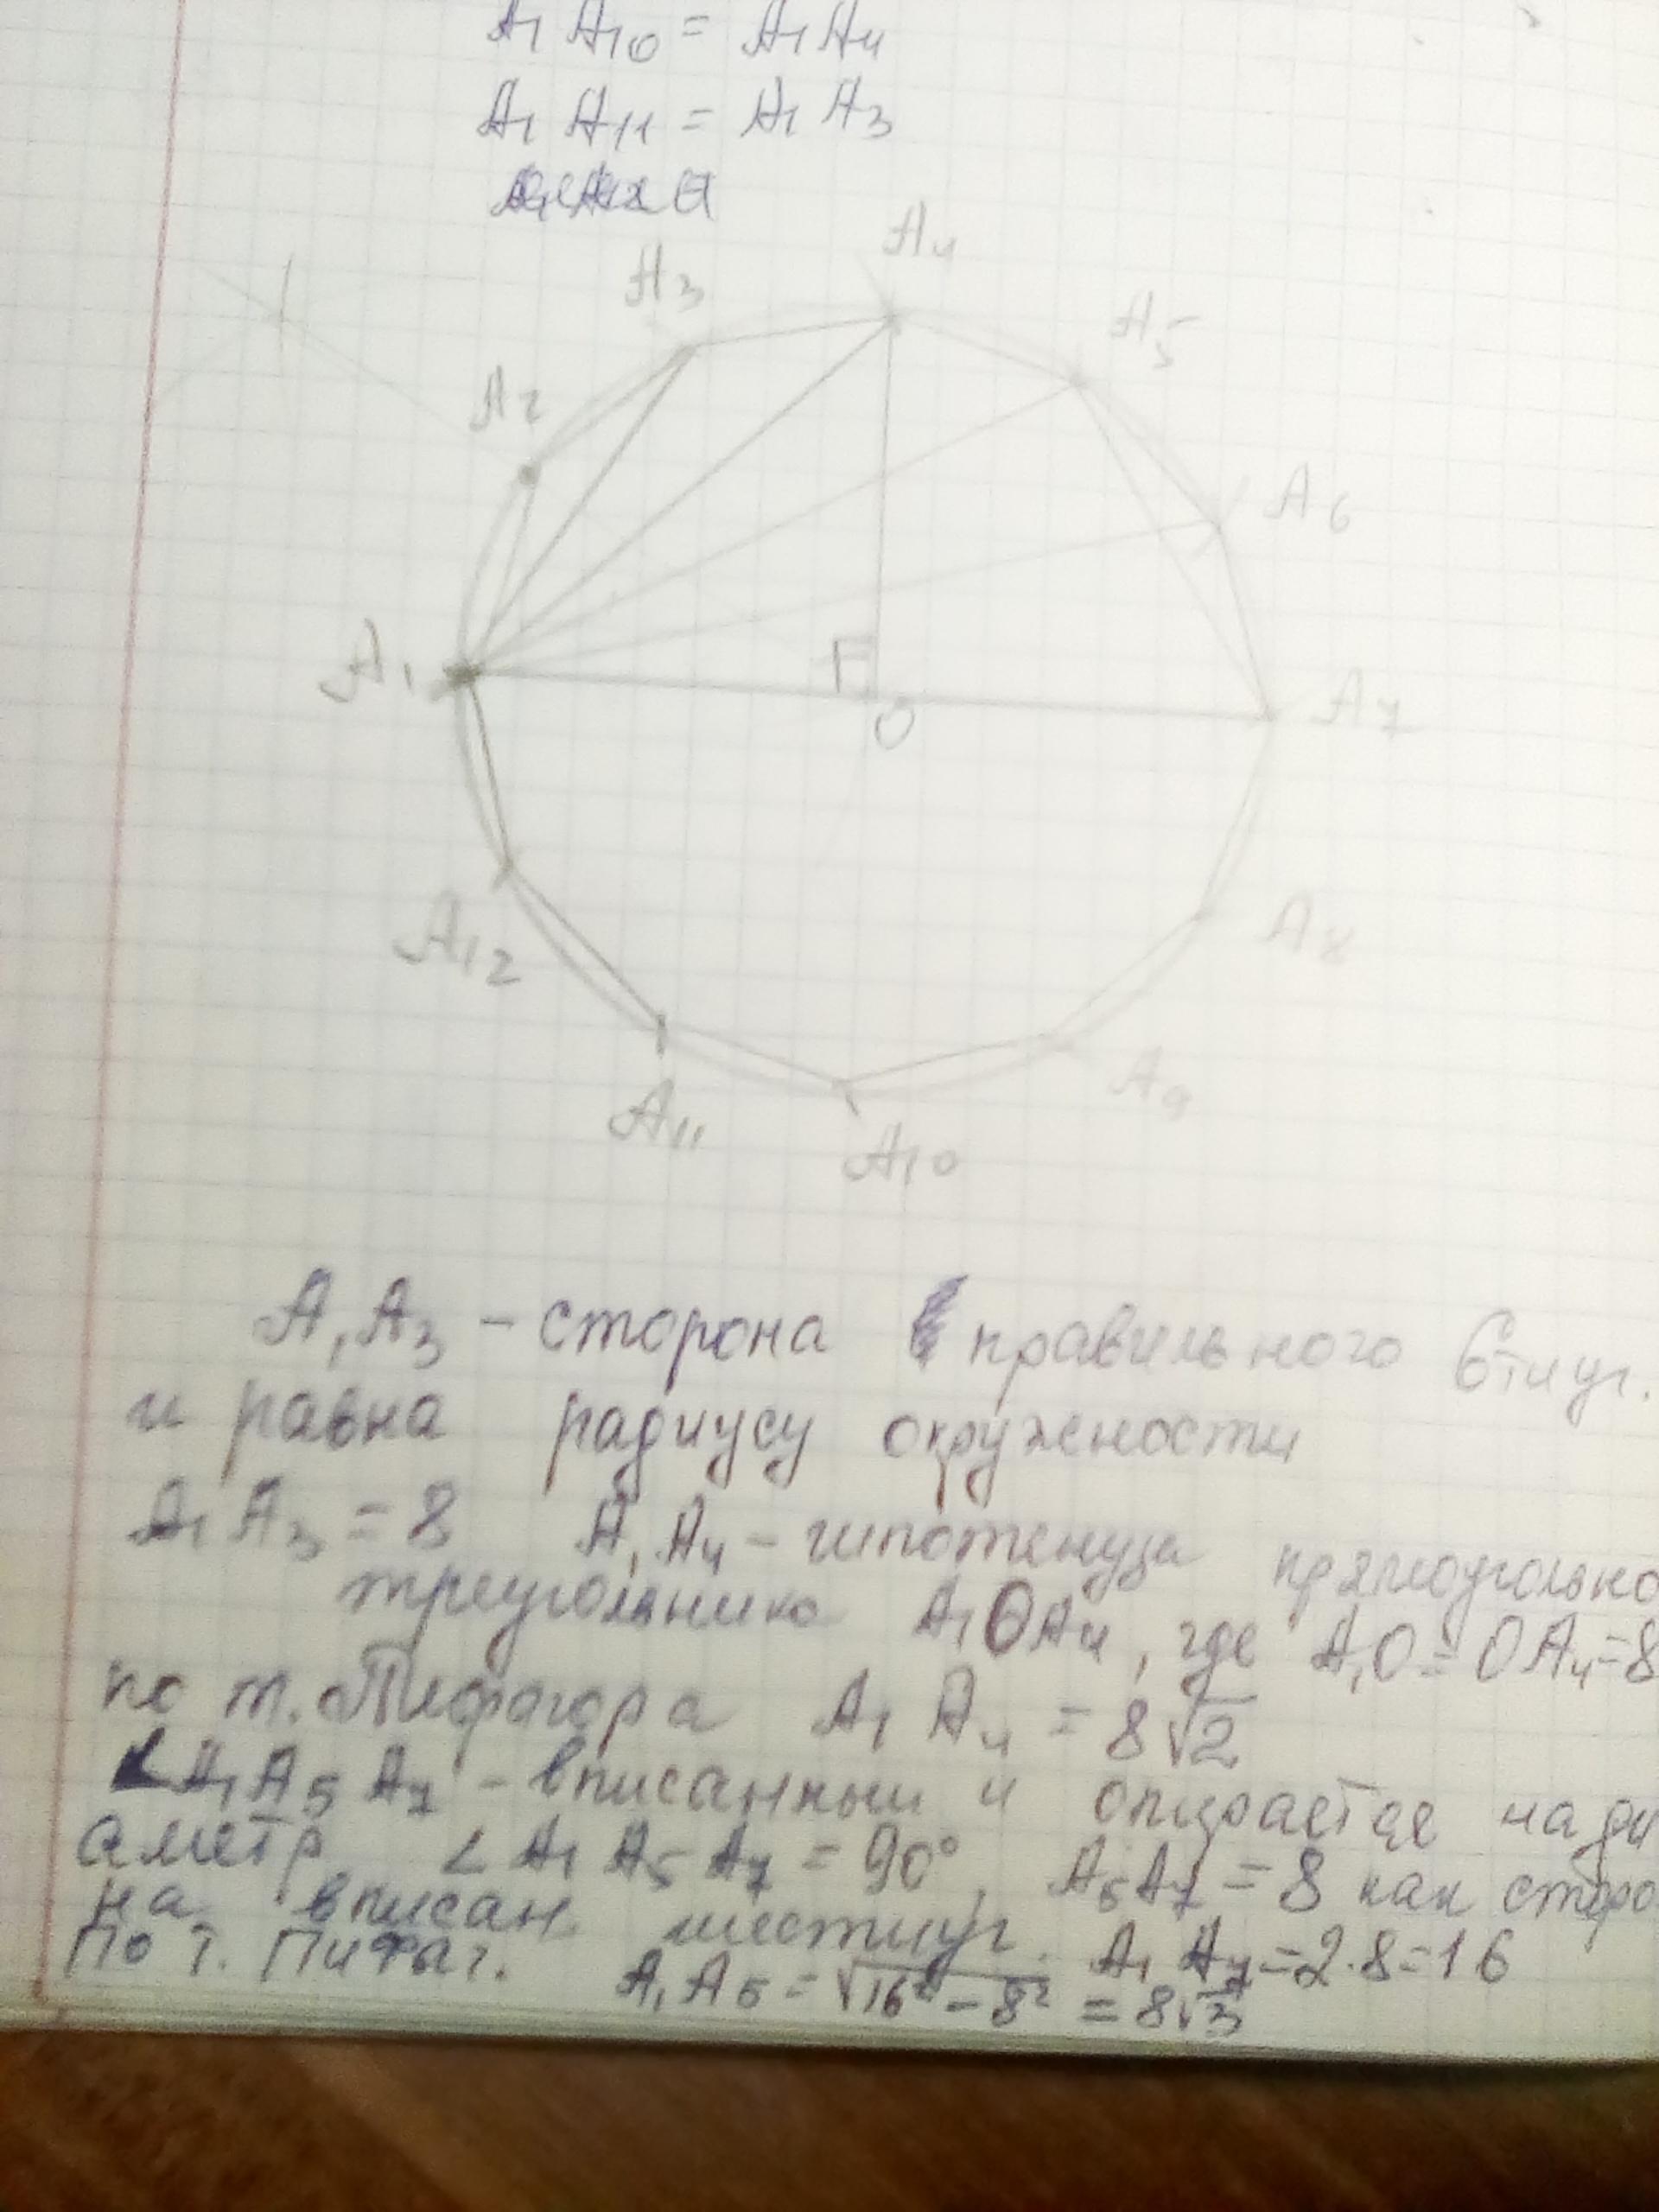 A₁A₁₀ = A₁A₄
A₁A₁₁ = A₁A₃
A₄
A₃
A₅
A₂
A₆
A₁
O
A₇
A₁₂
A₈
A₁₁
A₉
A₁₀
A₁A₃ – сторона правильного 6тиуг.
и равна радиусу окружности
A₁A₃ = 8 A₁A₄ – гипотенуза прямоугольно
треугольника A₁OA₄, где A₁O = OA₄ = 8
по т. Пифагора A₁A₄ = 8√2
∠A₁A₅A₇ – вписанный и опирается на ди
аметр ∠A₁A₅A₇ = 90°, A₅A₇ = 8 как сторо
на вписан. шестиуг. A₁A₇ = 2·8 = 16
По т. Пифаг. A₁A₅ = √16² – 8² = 8√3